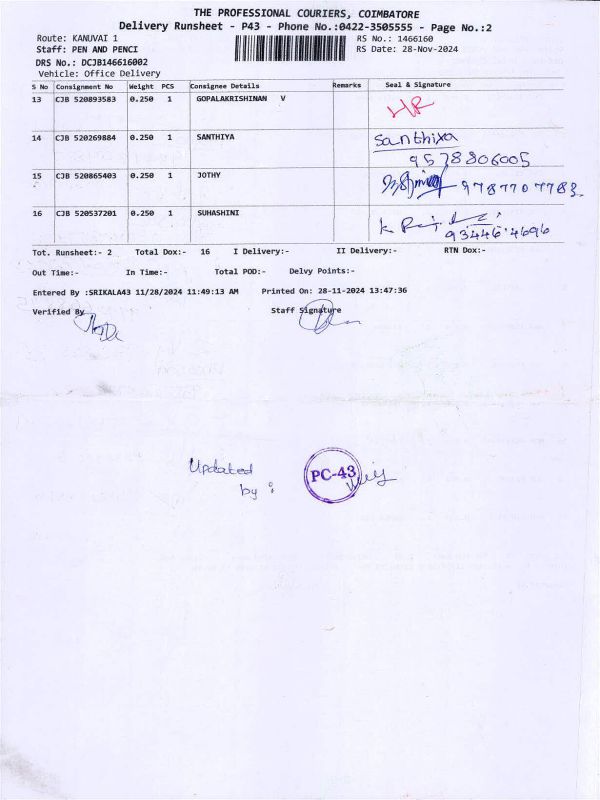 THE PROFESSIONAL COURIERS, COIMBATORE
Delivery Runsheet - P43 - Phone No.:0422-3505555 - Page No.:2
Route: KANUVAI 1 RS No.: 1466160
Staff: PEN AND PENCI RS Date: 28-Nov-2024
DRS No.: DCJB146616002
Vehicle: Office Delivery
S No Consignment No Weight PCS Consignee Details Remarks Seal & Signature
13 CJB 520893583 0.250 1 GOPALAKRISHINAN V
14 CJB 520269884 0.250 1 SANTHIYA Santhiya
9578806005
15 CJB 520865403 0.250 1 JOTHY 9787707783
16 CJB 520537201 0.250 1 SUHASHINI
Tot. Runsheet:- 2 Total Dox:- 16 I Delivery:- II Delivery:- RTN Dox:-
Out Time:- In Time:- Total POD:- Delvy Points:-
Entered By :SRIKALA43 11/28/2024 11:49:13 AM Printed On: 28-11-2024 13:47:36
Verified By Staff Signature
Updated
by : PC-43